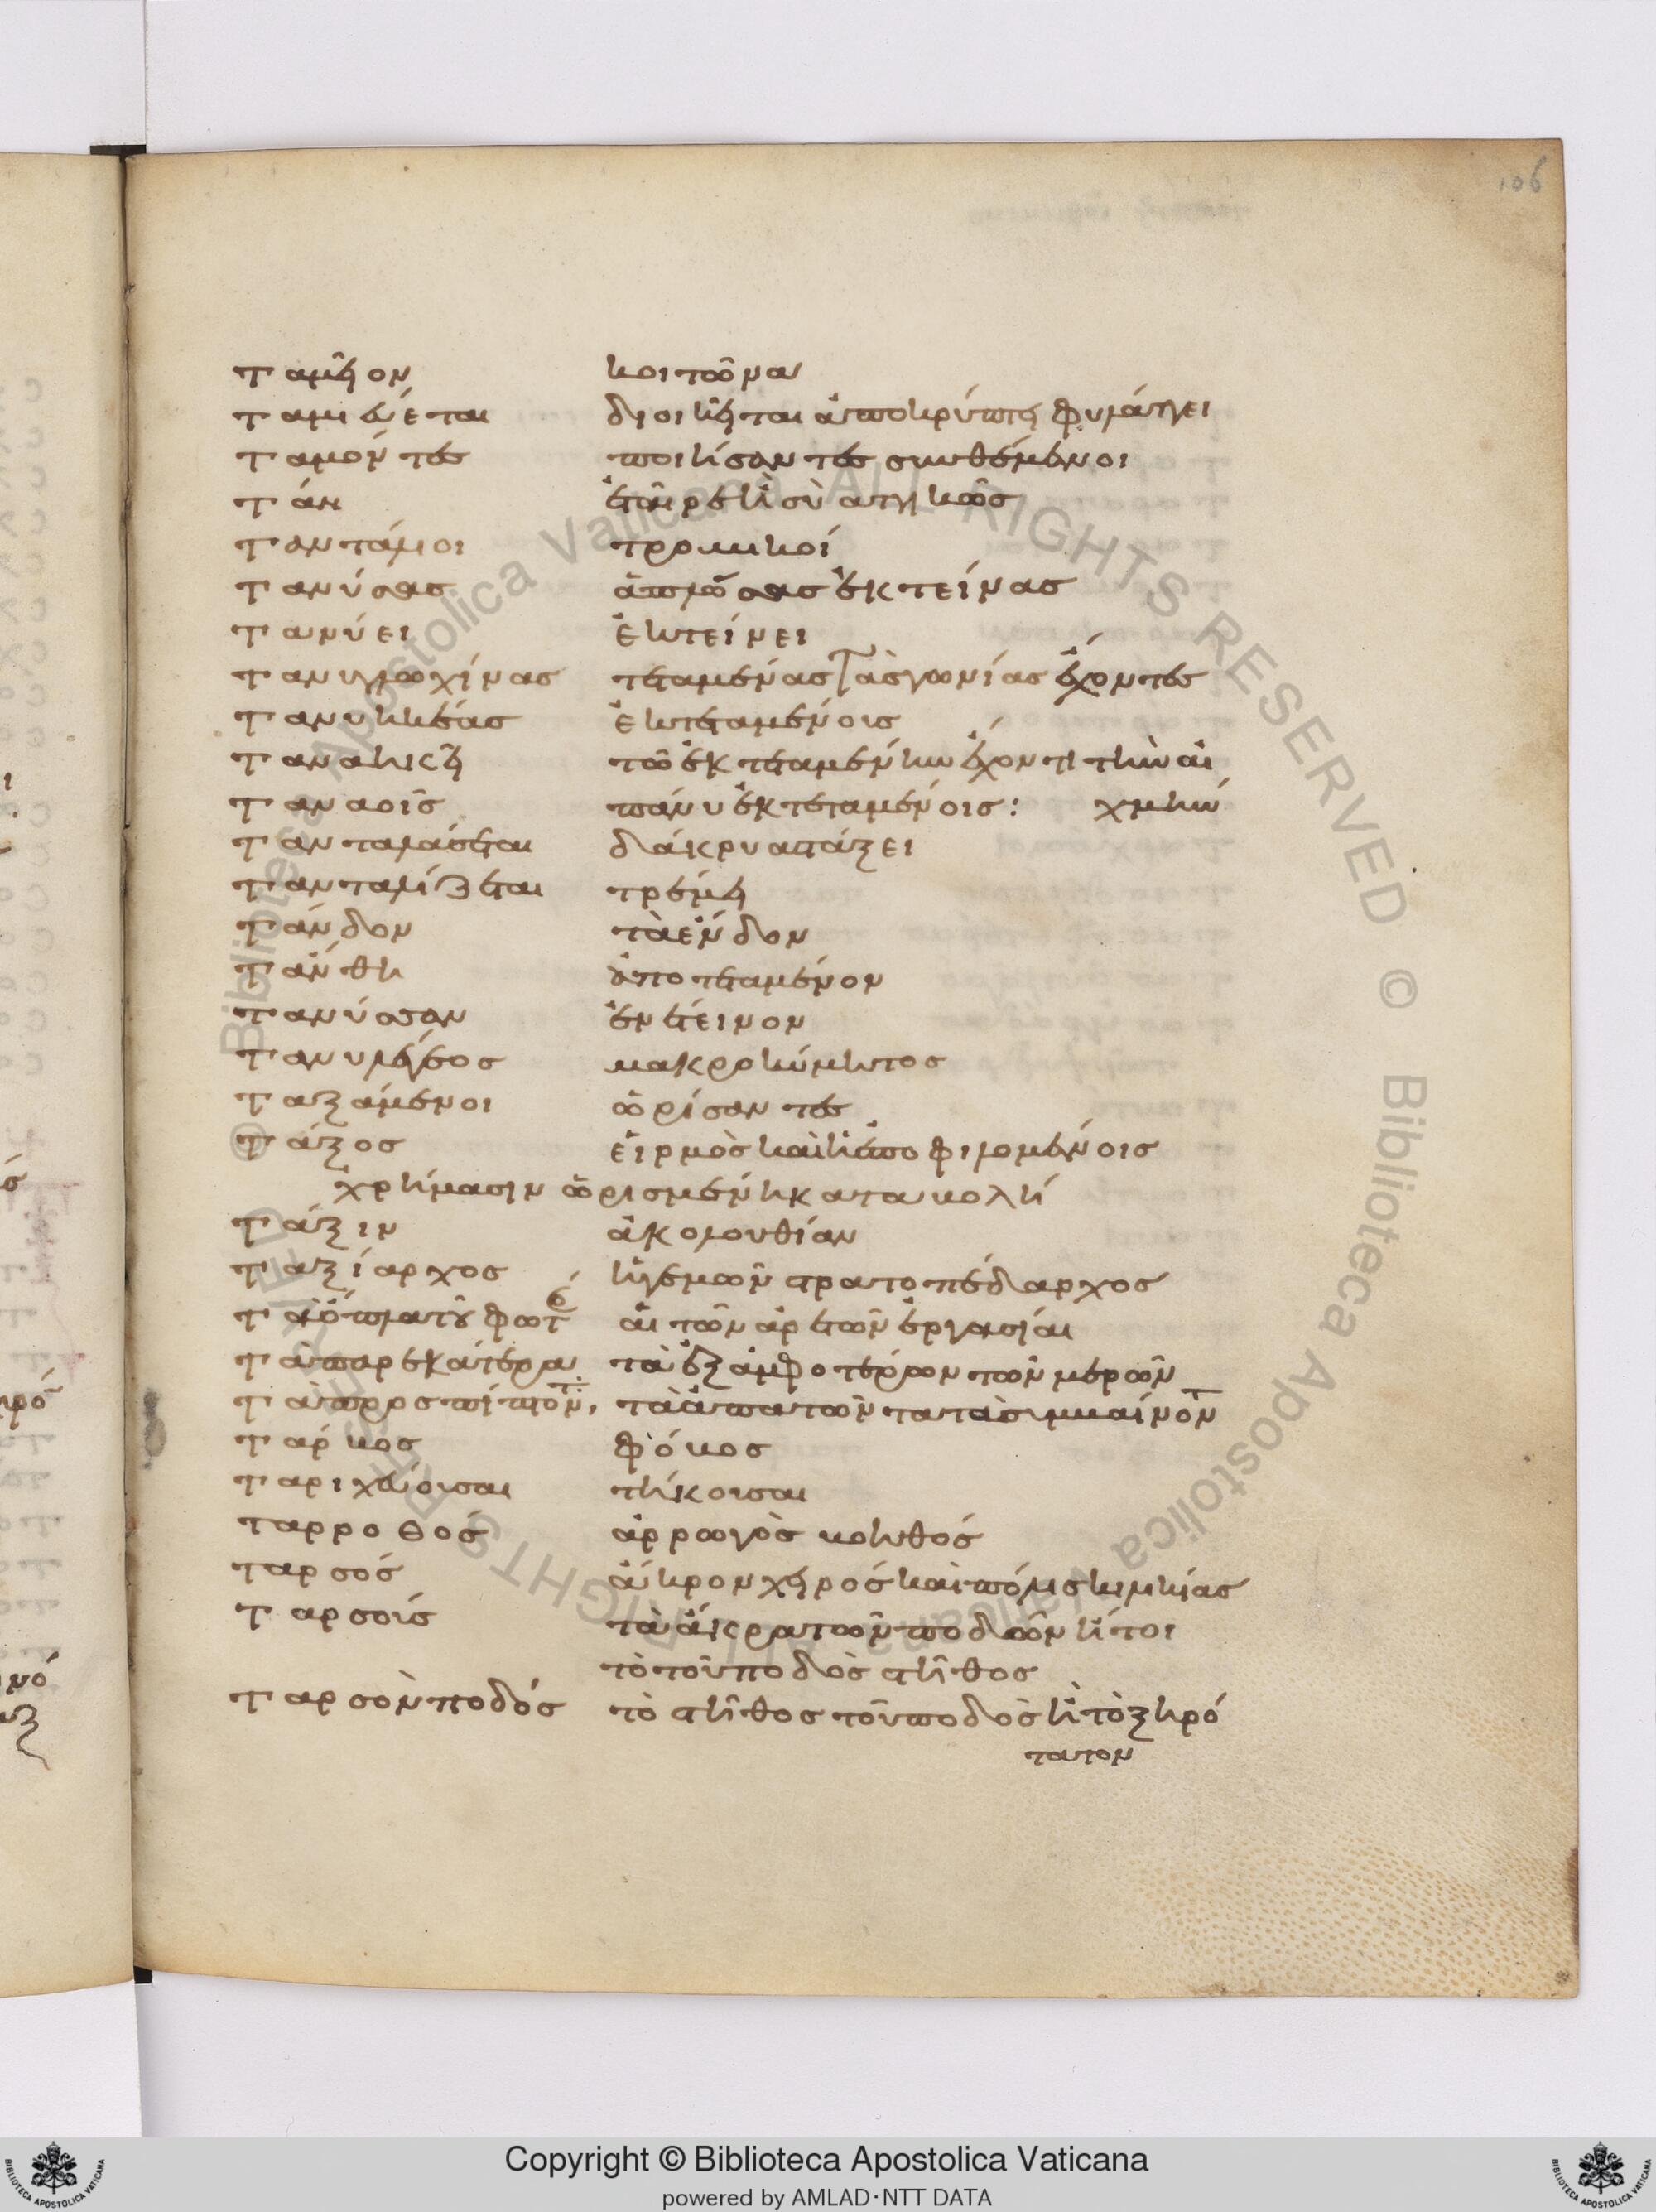 106
ταμεῖον κοιτῶνα
ταμιεύεται διοικεῖται ἀποκρύπτει φυλάττει
ταμόντες ποιήσαντες συνθέμενοι
τάν ἑταῖρε ἢ σὺ ἀττικῶς
τανταλοι τρομικοί
τανύσας ἁπλώσας ἐκτείνας
τανύει ἐκτείνει
τανυγλωχίνας τεταμένας τὰς γωνίας ἔχοντες
τανυηκέας ἐκτεταμένοις
ταναήκει τῶ ἐκτεταμένην ἔχοντι τὴν αἰ
ταναοῖς πάνυ ἐκτεταμένοις: χμήν
τανταλύσεται δάκρυα στάζει
τανταλίζεται τρέμει
τάνδον τὰ ἔνδον
τάνθη ἀποτεταμένον
τανύσαν ἐνέτεινον
τανυλέγεος μακροκύμητος
ταξάμενοι ὡρίσαντες
τάξος εἱρμὸς καὶ ἡ ἐπὸ φιλομένοις
χρήμασιν ὡρισμένη καταβολή
τάξιν ἀκολουθίαν
ταξίαρχος ἡγεμὼν στρατοπέδαρχος
τὰ ὅπλα τοῦ φωτ αἱ τῶν ἀρετῶν ἐργασίαι
τὰ παρ ἑκάτερα τὰ ἐξ ἀμφοτέρων τῶν μερῶν
τὰ προσπίπτοντ τὰ ἀπαντῶντα τὰ συμβαίνοντ
τάρβος φόβος
ταριχεύουσαι τήκουσαι
ταρροθος ἀρρωγὸς βοηθός
ταρσός ἄκρον χειρός καὶ πόλις κιλικίας
ταρσοίς τὰ ἄκρα τῶν ποδῶν ἤτοι
τὸ τοῦ ποδὸς στῆθος
ταρσὸν ποδός τὸ στῆθος τοῦ ποδὸς ἢ τὸ ξηρό
τατον
Copyright © Biblioteca Apostolica Vaticana
powered by AMLAD·NTT DATA